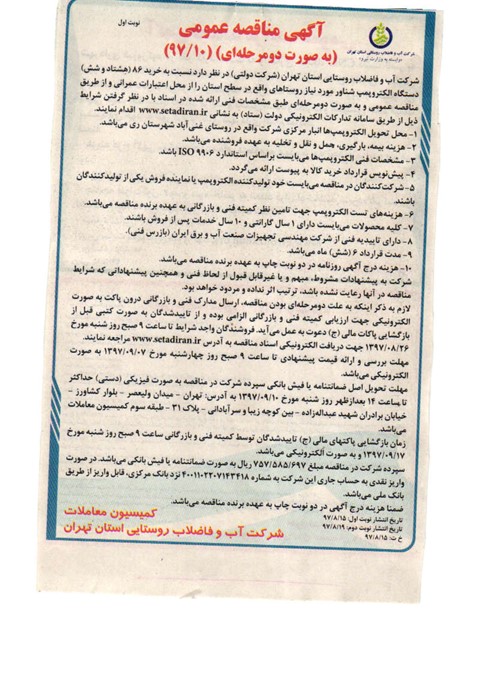 نوبت اول
آگهی مناقصه عمومی
(به صورت دومرحله‌ای) (۹۷/۱۰)
شرکت آب و فاضلاب روستایی استان تهران
(وابسته به وزارت نیرو)
شرکت آب و فاضلاب روستایی استان تهران (شرکت دولتی) در نظر دارد نسبت به خرید ۸۶ (هشتاد و شش)
دستگاه الکتروپمپ شناور مورد نیاز روستاهای واقع در سطح استان را از محل اعتبارات عمرانی و از طریق
مناقصه عمومی و به صورت دومرحله‌ای طبق مشخصات فنی ارائه شده در اسناد با در نظر گرفتن شرایط
ذیل از طریق سامانه تدارکات الکترونیکی دولت (ستاد) به نشانی www.setadiran.ir اقدام نمایند.
۱- محل تحویل الکتروپمپ‌ها انبار مرکزی شرکت واقع در روستای غنی‌آباد شهرستان ری می‌باشد.
۲- هزینه بیمه، بارگیری، حمل و نقل و تخلیه به عهده فروشنده می‌باشد.
۳- مشخصات فنی الکتروپمپ‌ها می‌بایست براساس استاندارد ISO ۹۹۰۶ باشد.
۴- پیش‌نویس قرارداد خرید کالا به پیوست ارائه می‌گردد.
۵- شرکت‌کنندگان در مناقصه می‌بایست خود تولیدکننده الکتروپمپ یا نماینده فروش یکی از تولیدکنندگان
باشند.
۶- هزینه‌های تست الکتروپمپ جهت تامین نظر کمیته فنی و بازرگانی به عهده برنده مناقصه می‌باشد.
۷- کلیه محصولات می‌بایست دارای ۱ سال گارانتی و ۱۰ سال خدمات پس از فروش باشند.
۸- دارای تاییدیه فنی از شرکت مهندسی تجهیزات صنعت آب و برق ایران (بازرس فنی).
۹- مدت قرارداد ۶ (شش) ماه می‌باشد.
۱۰- هزینه درج آگهی روزنامه در دو نوبت چاپ به عهده برنده مناقصه می‌باشد.
شرکت به پیشنهادات مشروط، مبهم و یا غیرقابل قبول از لحاظ فنی و همچنین پیشنهاداتی که شرایط
مناقصه در آنها رعایت نشده باشد، ترتیب اثر نداده و مردود خواهد بود.
لازم به ذکر اینکه به علت دومرحله‌ای بودن مناقصه، ارسال مدارک فنی و بازرگانی درون پاکت به صورت
الکترونیکی جهت ارزیابی کمیته فنی و بازرگانی الزامی بوده و از تاییدشدگان به صورت کتبی قبل از
بازگشایی پاکات مالی (ج) دعوت به عمل می‌آید. فروشندگان واجد شرایط تا ساعت ۹ صبح روز شنبه مورخ
۱۳۹۷/۰۸/۲۶ جهت دریافت الکترونیکی اسناد مناقصه به آدرس www.setadiran.ir مراجعه نمایند.
مهلت بررسی و ارائه قیمت پیشنهادی تا ساعت ۹ صبح روز چهارشنبه مورخ ۱۳۹۷/۰۹/۰۷ به صورت
الکترونیکی می‌باشد.
مهلت تحویل اصل ضمانتنامه یا فیش بانکی سپرده شرکت در مناقصه به صورت فیزیکی (دستی) حداکثر
تا ساعت ۱۴ بعدازظهر روز شنبه مورخ ۱۳۹۷/۰۹/۱۰ به آدرس: تهران - میدان ولیعصر - بلوار کشاورز -
خیابان برادران شهید عبداله‌زاده - بین کوچه زیبا و سرآبادانی - پلاک ۳۱ - طبقه سوم کمیسیون معاملات
می‌باشد.
زمان بازگشایی پاکتهای مالی (ج) تاییدشدگان توسط کمیته فنی و بازرگانی ساعت ۹ صبح روز شنبه مورخ
۱۳۹۷/۰۹/۱۷ و به صورت الکترونیکی می‌باشد.
سپرده شرکت در مناقصه مبلغ ۷۵۷/۵۸۵/۶۹۷ ریال به صورت ضمانتنامه یا فیش بانکی می‌باشد. در صورت
واریز نقدی به حساب جاری این شرکت به شماره ۴۰۰۱۱۰۲۲۰۷۱۴۳۴۱۸ نزد بانک مرکزی، قابل واریز از طریق
بانک ملی می‌باشد.
ضمنا هزینه درج آگهی در دو نوبت چاپ به عهده برنده مناقصه می‌باشد.
تاریخ انتشار نوبت اول: ۹۷/۸/۱۵
تاریخ انتشار نوبت دوم: ۹۷/۸/۱۹
خ ت: ۹۷/۸/۱۵
کمیسیون معاملات
شرکت آب و فاضلاب روستایی استان تهران